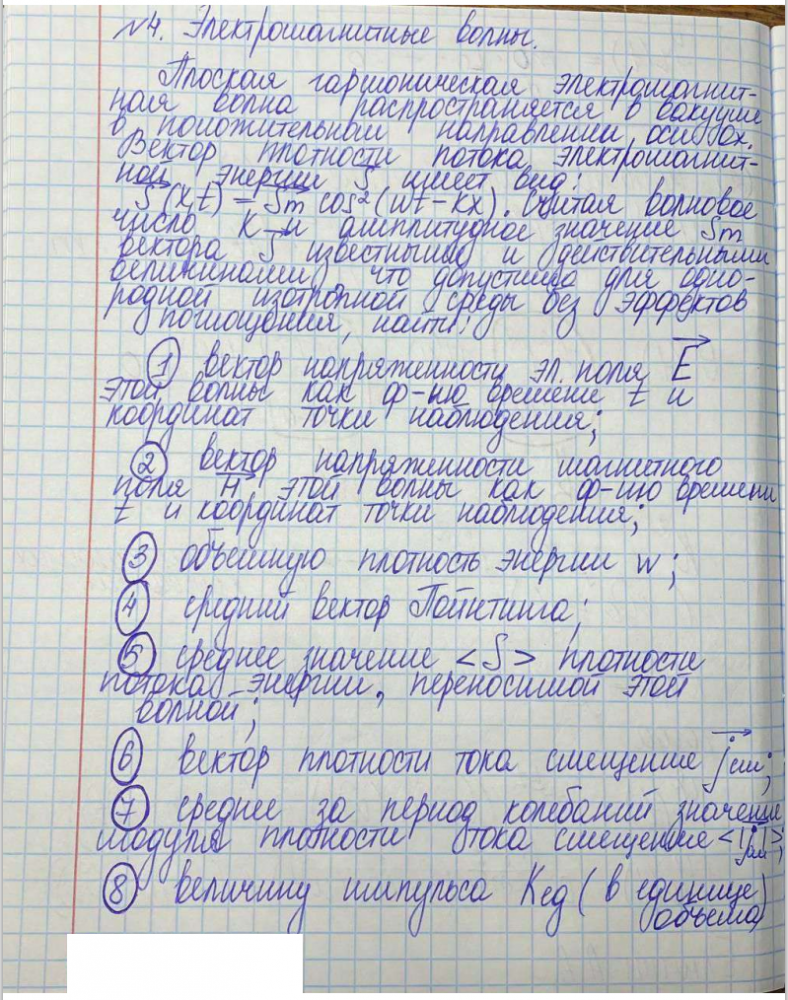 №4. Электромагнитные волны.
Плоская гармоническая электромагнит-
ная волна распространяется в вакууме
в положительном направлении оси ox.
Вектор плотности потока электромагнит-
ной энергии S имеет вид:
S(x,t) = Sm cos²(wt-kx). Считая волновое
число k и амплитудное значение Sm
вектора S известными и действительными
величинами, что допустимо для одно-
родной изотропной среды без эффектов
поглощения, найти:
① вектор напряженности эл. поля E
этой волны как ф-ию времени t и
координат точки наблюдения;
② вектор напряженности магнитного
поля H этой волны как ф-ию времени
t и координат точки наблюдения;
③ объемную плотность энергии w;
④ средний вектор Пойнтинга;
⑤ среднее значение <S> плотности
потока энергии, переносимой этой
волной;
⑥ вектор плотности тока смещение jсм;
⑦ среднее за период колебаний значение
модуля плотности тока смещение <|jсм|>;
⑧ величину импульса Kед (в единице
объема)